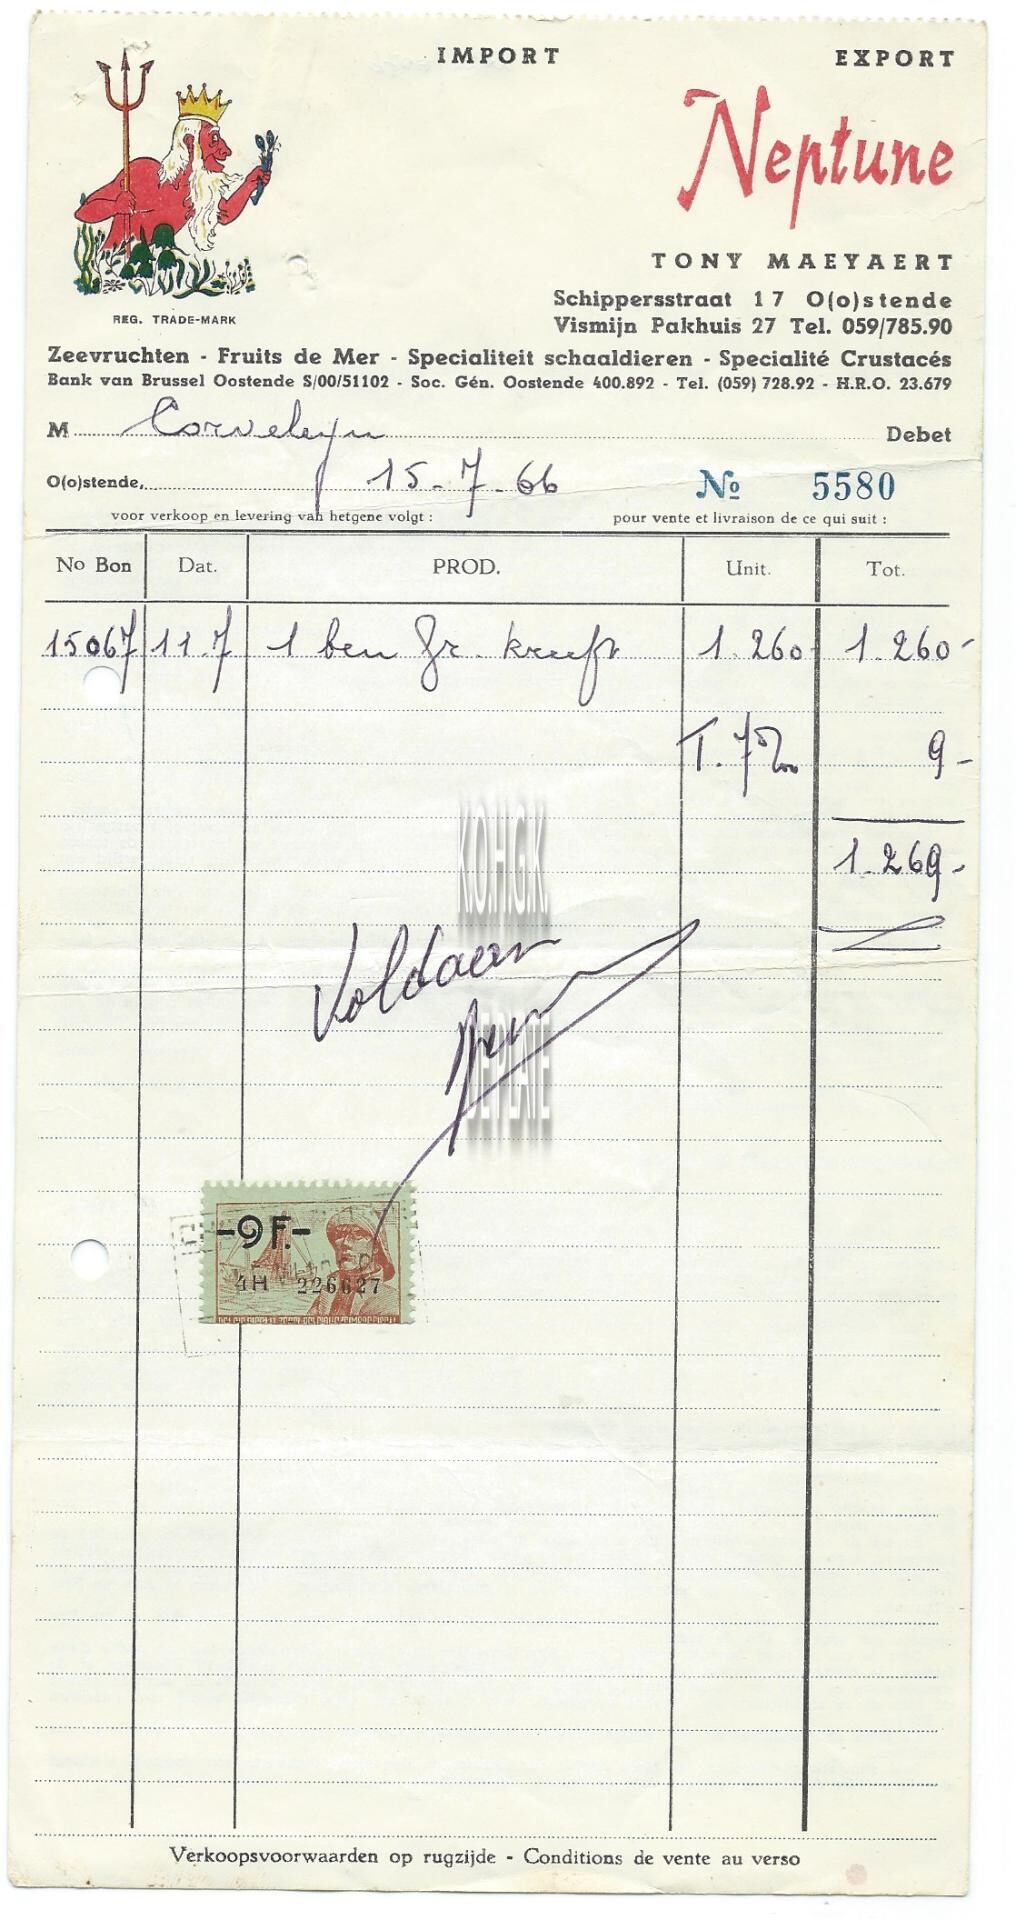 IMPORT EXPORT
Neptune
TONY MAEYAERT
REG. TRADE-MARK
Schippersstraat 17 O(o)stende
Vismijn Pakhuis 27 Tel. 059/785.90
Zeevruchten - Fruits de Mer - Specialiteit schaaldieren - Specialité Crustacés
Bank van Brussel Oostende S/00/51102 - Soc. Gén. Oostende 400.892 - Tel. (059) 728.92 - H.R.O. 23.679
M Corveleyn Debet
O(o)stende, 15-7-66 No 5580
voor verkoop en levering van hetgene volgt : pour vente et livraison de ce qui suit :
No Bon Dat. PROD. Unit. Tot.
15067 11.7 1 ben gr. kreeft 1.260- 1.260-
T. 7‰ 9-
1.269-
K.O.H.G.K.
Voldaan
DE PLATE
-9F.-
4H 226627
Verkoopsvoorwaarden op rugzijde - Conditions de vente au verso